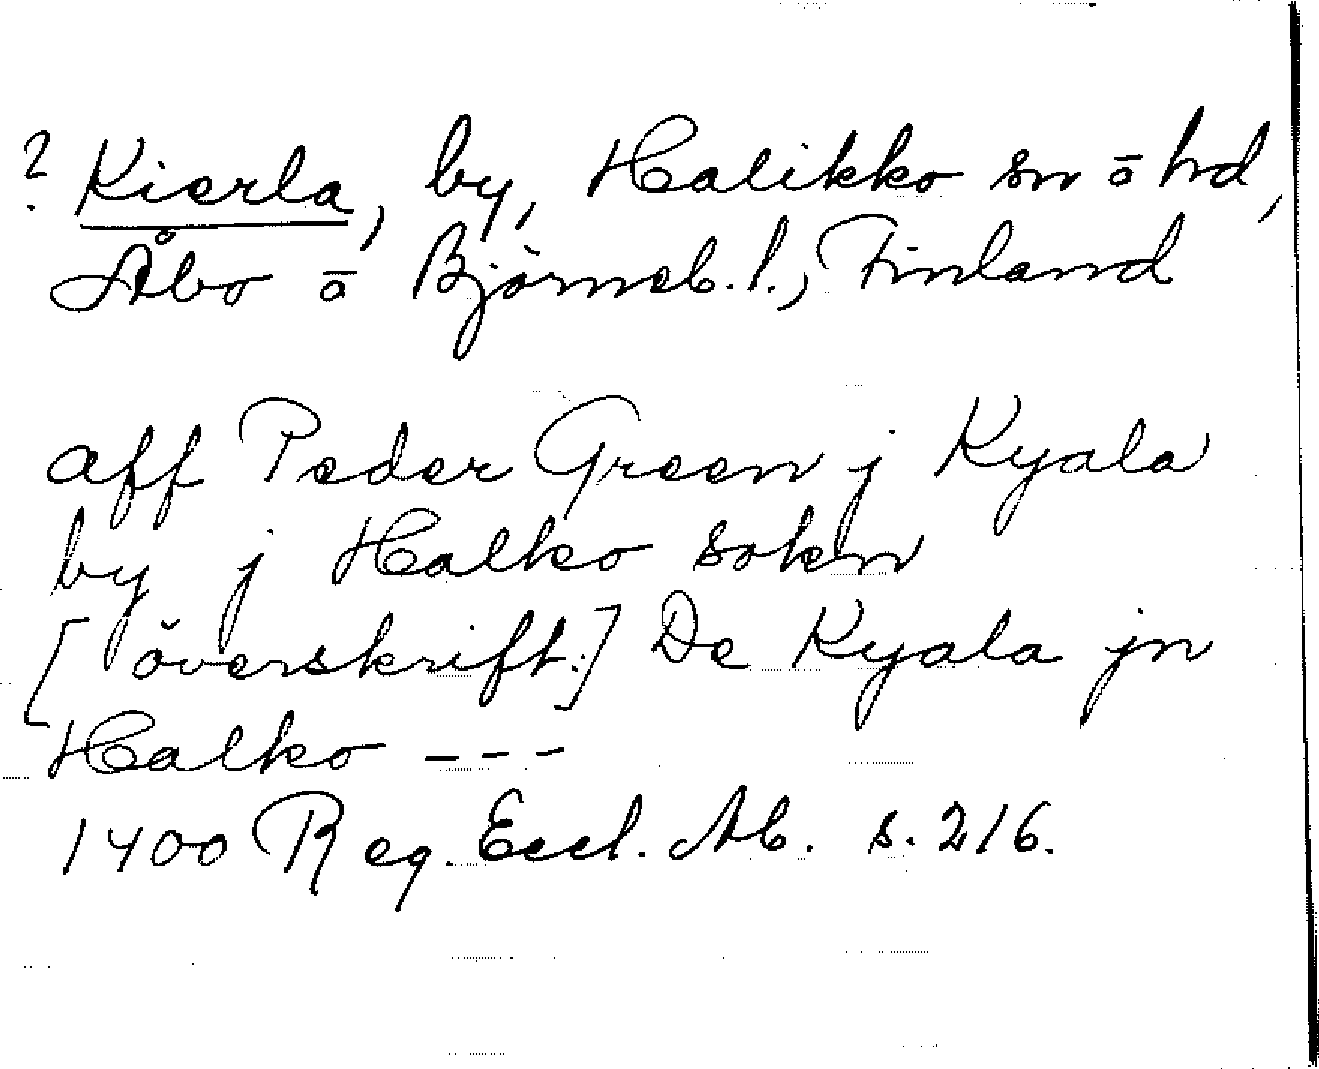 ? Kierla, by, Halikko sn o hd,
Åbo o Björneb. l., Finland
aff Peder Green j Kyala
by j Halko sokn
[överskift.] De Kyala jn
Halko ---
1400 Reg. Eccl. Ab. s. 216.